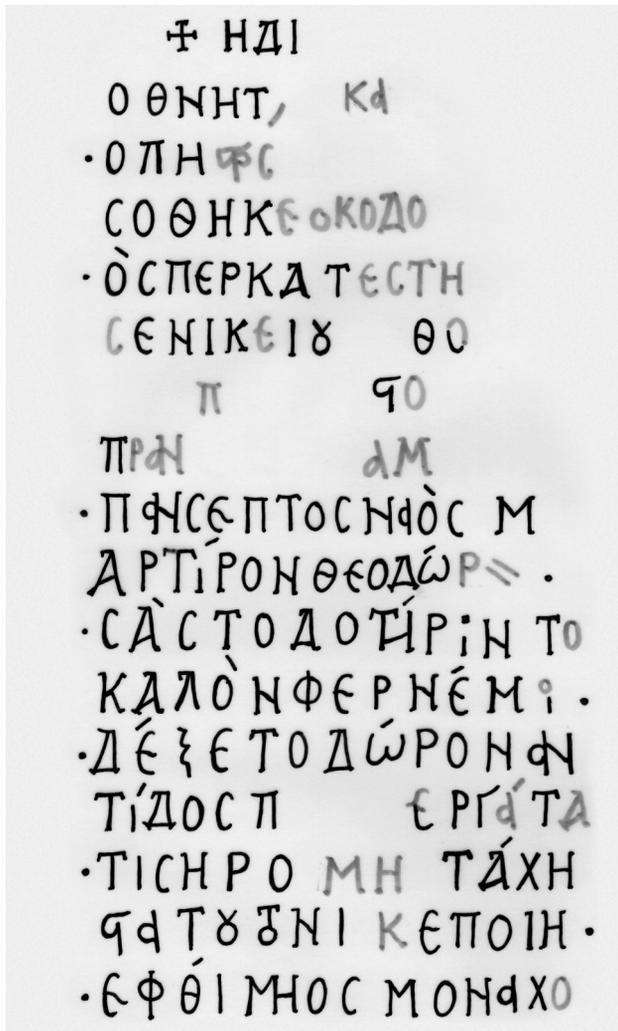 ✢ ΗΔΙ
Ο ΘΝΗΤ, Κα
·ΟΠΗ C
CΟΘΗΚΕΟΚΟΔΟ
·ὸCΠΕΡΚΑΤΕCΤΗ
CΕΝΙΚΕΙȣ ΘΟ
Π ϤΟ
ΠΡαΝ αΜ
·ΠαΝCΕΠΤΟCΝαὸC Μ
ΑΡΤίΡΟΝΘΕΟΔώΡ ·
·CᾺCΤΟΔΟΤΉΡιΝ ΤΟ
ΚΑΛῸΝΦΕΡΝΈΜι ·
·ΔΈξΕΤΟΔώΡΟΝαΝ
ΤίΔΟCΠ ΕΡΓάΤΑ
·ΤΙCΗΡΟ ΜΗ ΤΆΧΗ
ϤαΤȣ ΝΙ ΚΕΠΟΙΗ·
·ΕΦΘΊΜΗΟC ΜΟΝαΧΟ